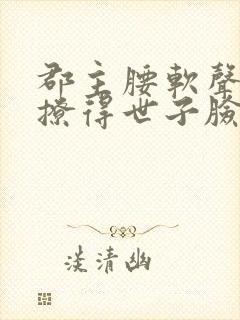 郡主腰軟聲
撩得世子臉
淡清幽